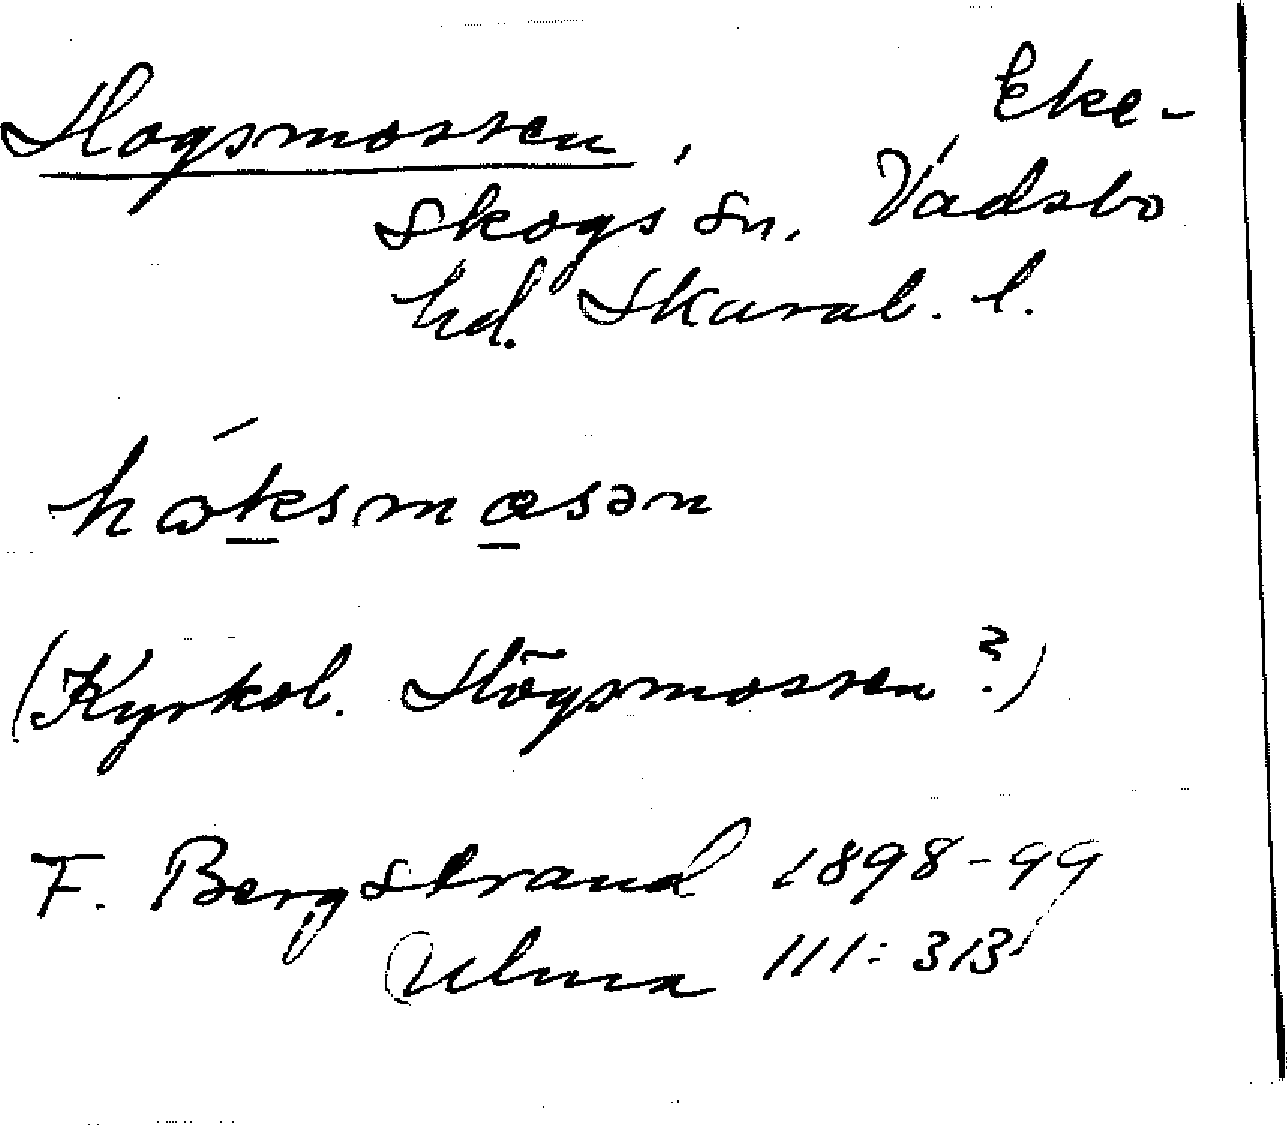 Hogsmossen, Eke-
skogs sn. Vadsbo
hd. Skarab. l.
håksmosən
(Kyrkob. Högsmossen ?)
F. Bergstrand 1898-99
Ulma 111:313